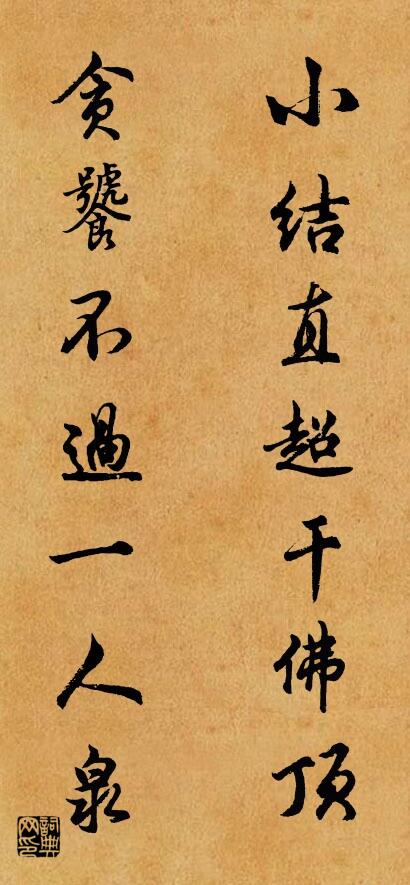 小结直超干佛顶
贪饕不過一人泉
詞典
网印